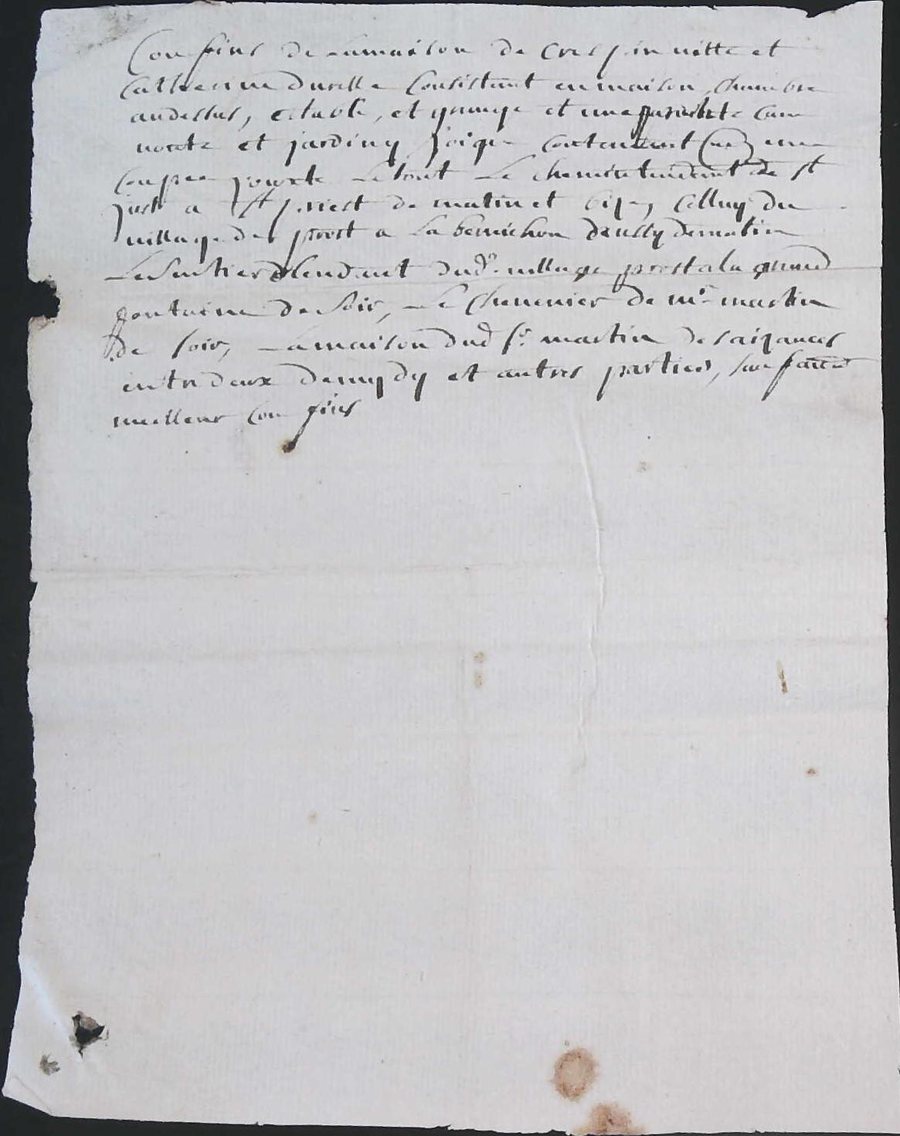 Confins de la maison de Crespin vitte et
Catherine durelle Consistant en maison, chambre
audessus, estable, et grange et une petite Cam
et jarding joigns contenant une
Coupee jointe Le tout Le chemin tendant de st
just a st priest de matin et bize, Celluy du
village de prost a La bernichon de matin
Le Sentier tendant dud. village prost a la grand
fontaine de soir, Le Chenevier de mr. martin
de soir, La maison dud sr. martin des aizances
entredeux de mydy et autres parties, sauf
meilleur Confins